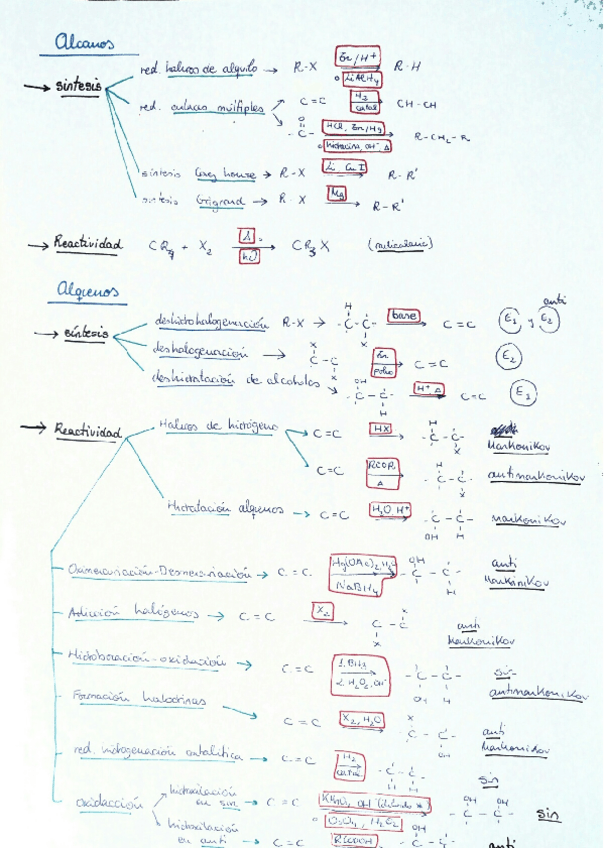 Alcanos
→ síntesis
red. haluros de alquilo → R-X Zn/H⁺ o LiAlH₄ → R-H
red. enlaces múltiples C=C H₂ catal → CH-CH
O -C- HCl, Zn/Hg o hidracina, OH⁻ Δ → R-CH₂-R
síntesis Corey house → R-X Li CuI → R-R'
síntesis Grignard → R-X Mg → R-R'
→ Reactividad CR₄ + X₂ Δ o hν → CR₃X (radicalario)
Alquenos
→ síntesis
deshidrohalogenación R-X → H -C-C- X base → C=C E₁ y E₂ anti
deshalogenación → X C-C X Zn polvo → C=C E₂
deshidratación de alcoholes OH -C-C- H H⁺ Δ → C=C E₁
→ Reactividad
Haluros de hidrógeno C=C HX → H -C-C- X Markonikov
C=C RCOR Δ → H -C-C- X antimarkonikov
Hidratación alquenos → C=C H₂O H⁺ → -C-C- OH H markonikov
Oximercuriación-Desmercuriación → C=C Hg(OAc)₂, H₂O NaBH₄ → OH -C-C- H anti Markonikov
Adición halógenos → C=C X₂ → X C-C X anti Markonikov
Hidroboración-oxidación → C=C 1. BH₃ 2. H₂O₂, OH⁻ → -C-C- OH H sin antimarkonikov
Formación halodrinas → C=C X₂, H₂O → X -C-C- OH anti Markonikov
red. hidrogenación catalítica → C=C H₂ catal → -C-C- H H sin
oxidación
hidroxilación en sin → C=C KMnO₄, OH⁻ o OsO₄, H₂O₂ → OH OH -C-C- sin
hidroxilación en anti → C=C RCOOOH → OH -C-C- anti